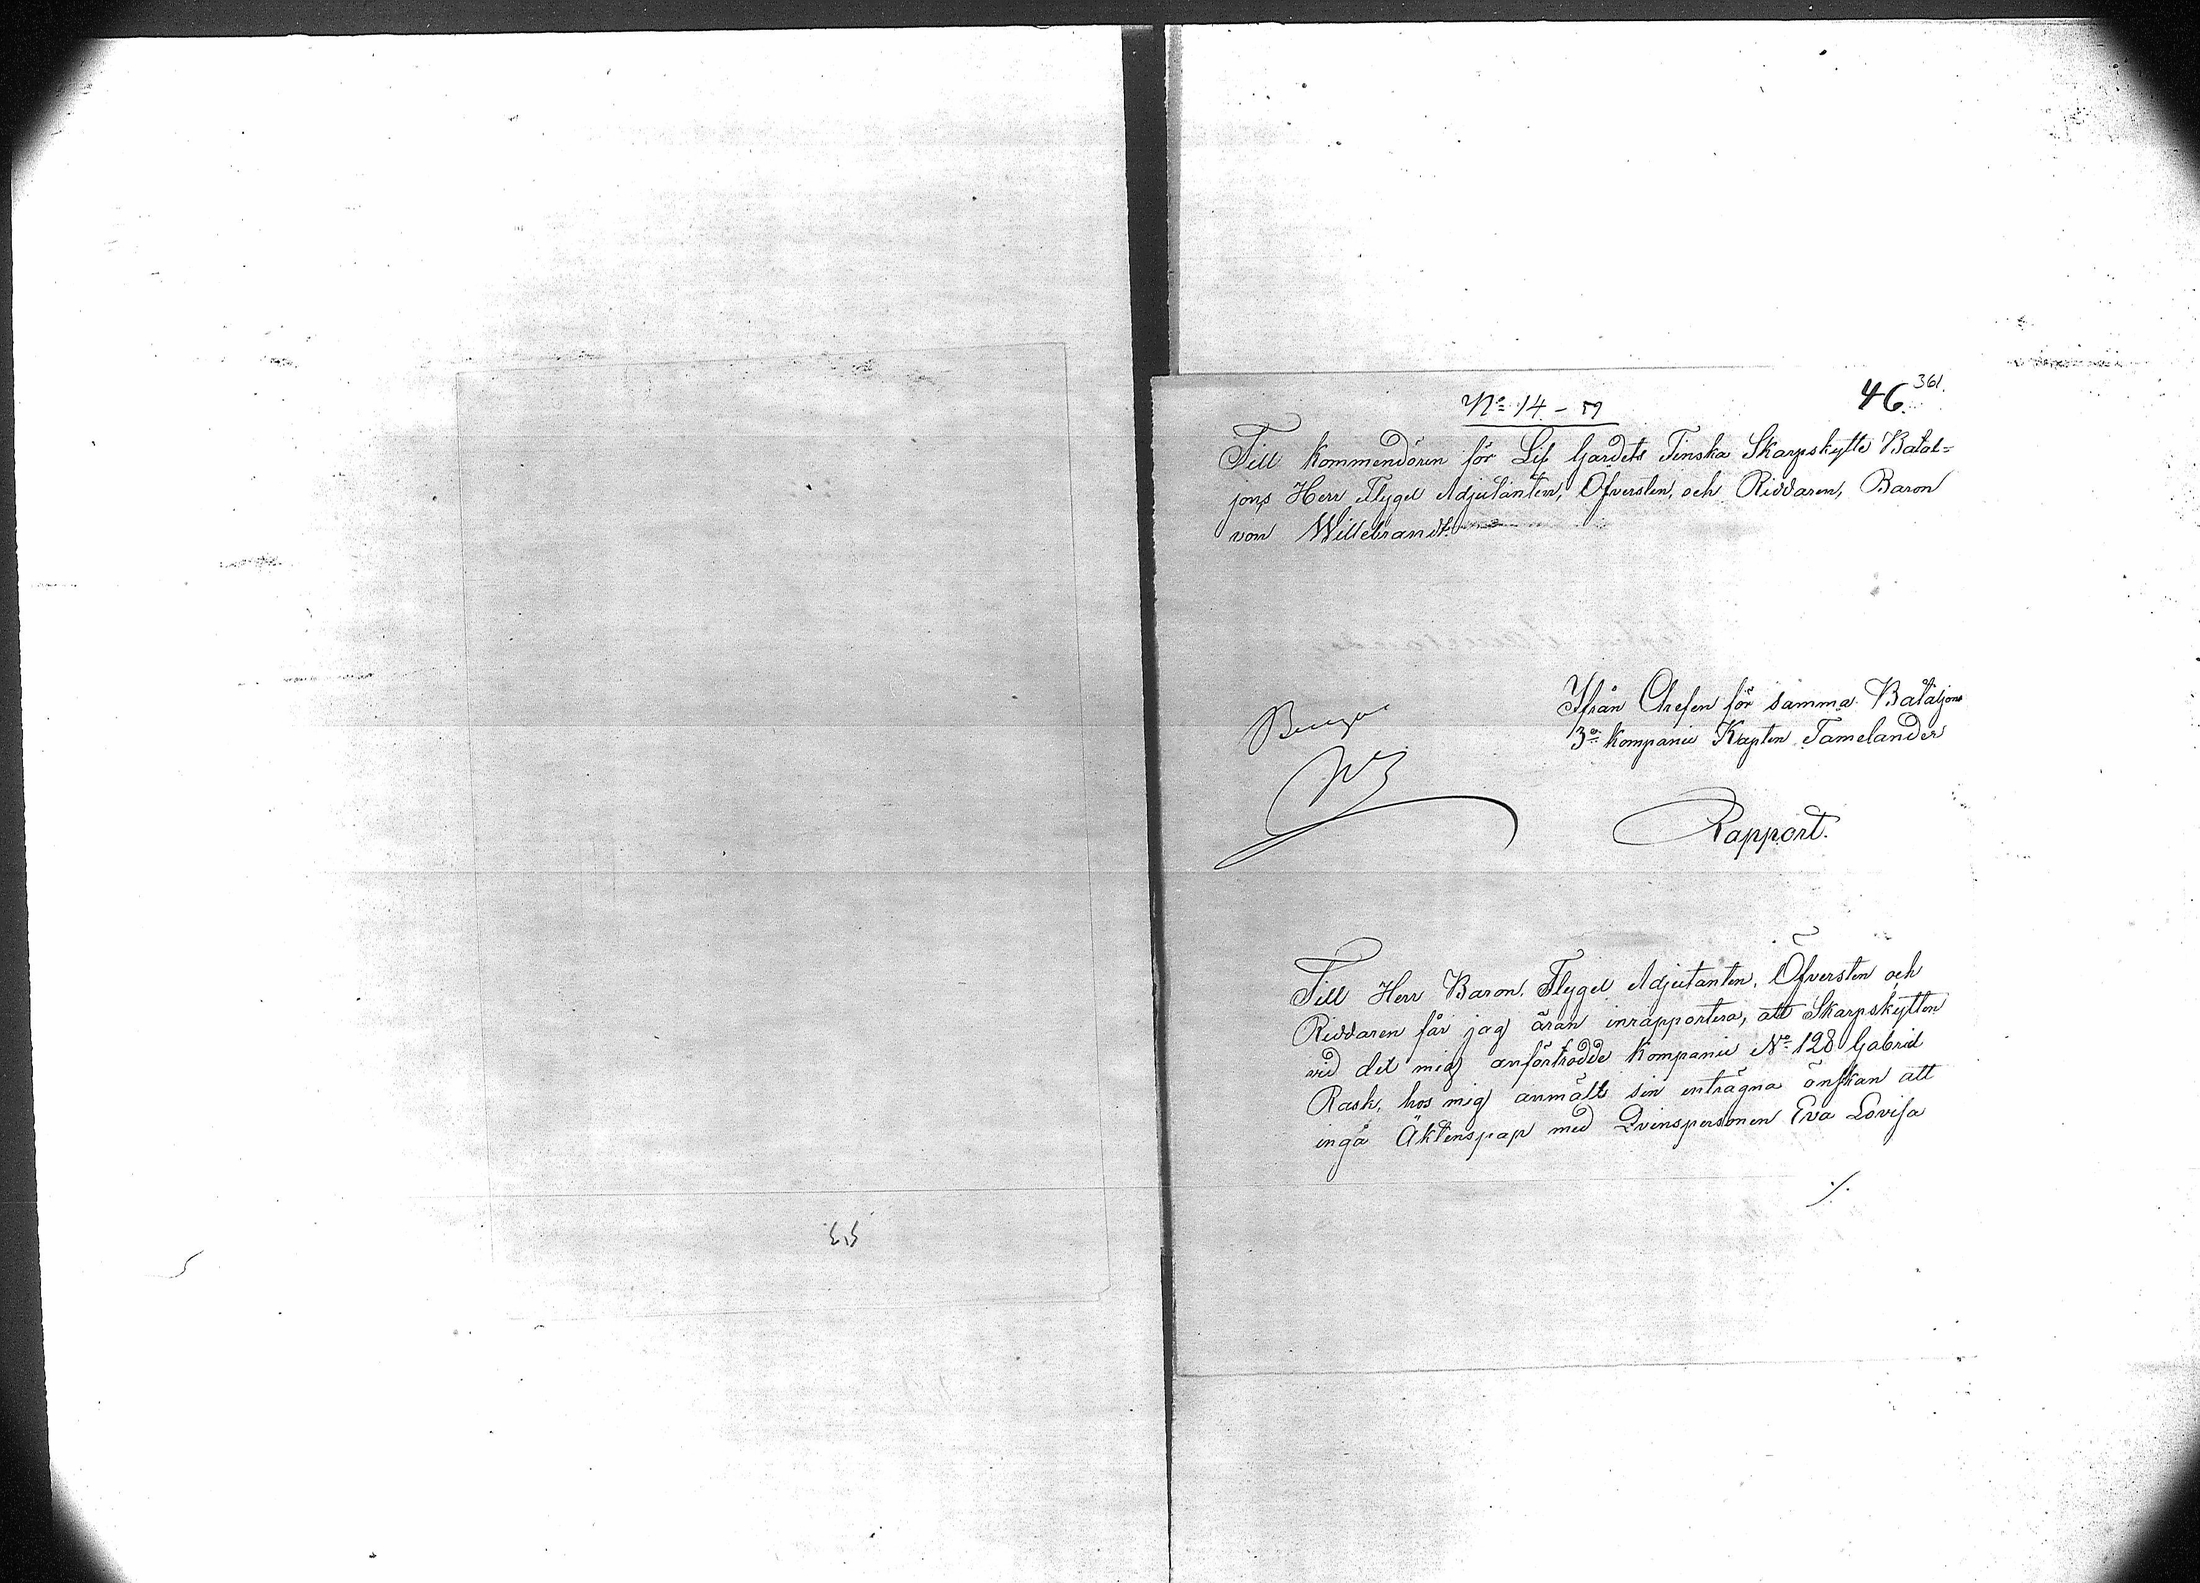 361.
46.
No 14 –
Till Kommendören för Lif Gardets Finska Skarpskytte Batal=
jons Herr Flygel Adjutanten, Öfversten, och Riddaren, Baron
von Willebrandt.
Ifrån Chefen för samma Bataljons
3e Kompanie Kapten Tamelander
Rapport.
Till Herr Baron, Flygel Adjutanten, Öfversten och
Riddaren får jag äran inrapportera, att Skarpskytten
vid det mig anförtrodde Kompanie No 128 Gabriel
Rask, hos mig anmält sin enträgna önskan att
ingå Äktenspap med Qvinspersonen Eva Lovisa
./.